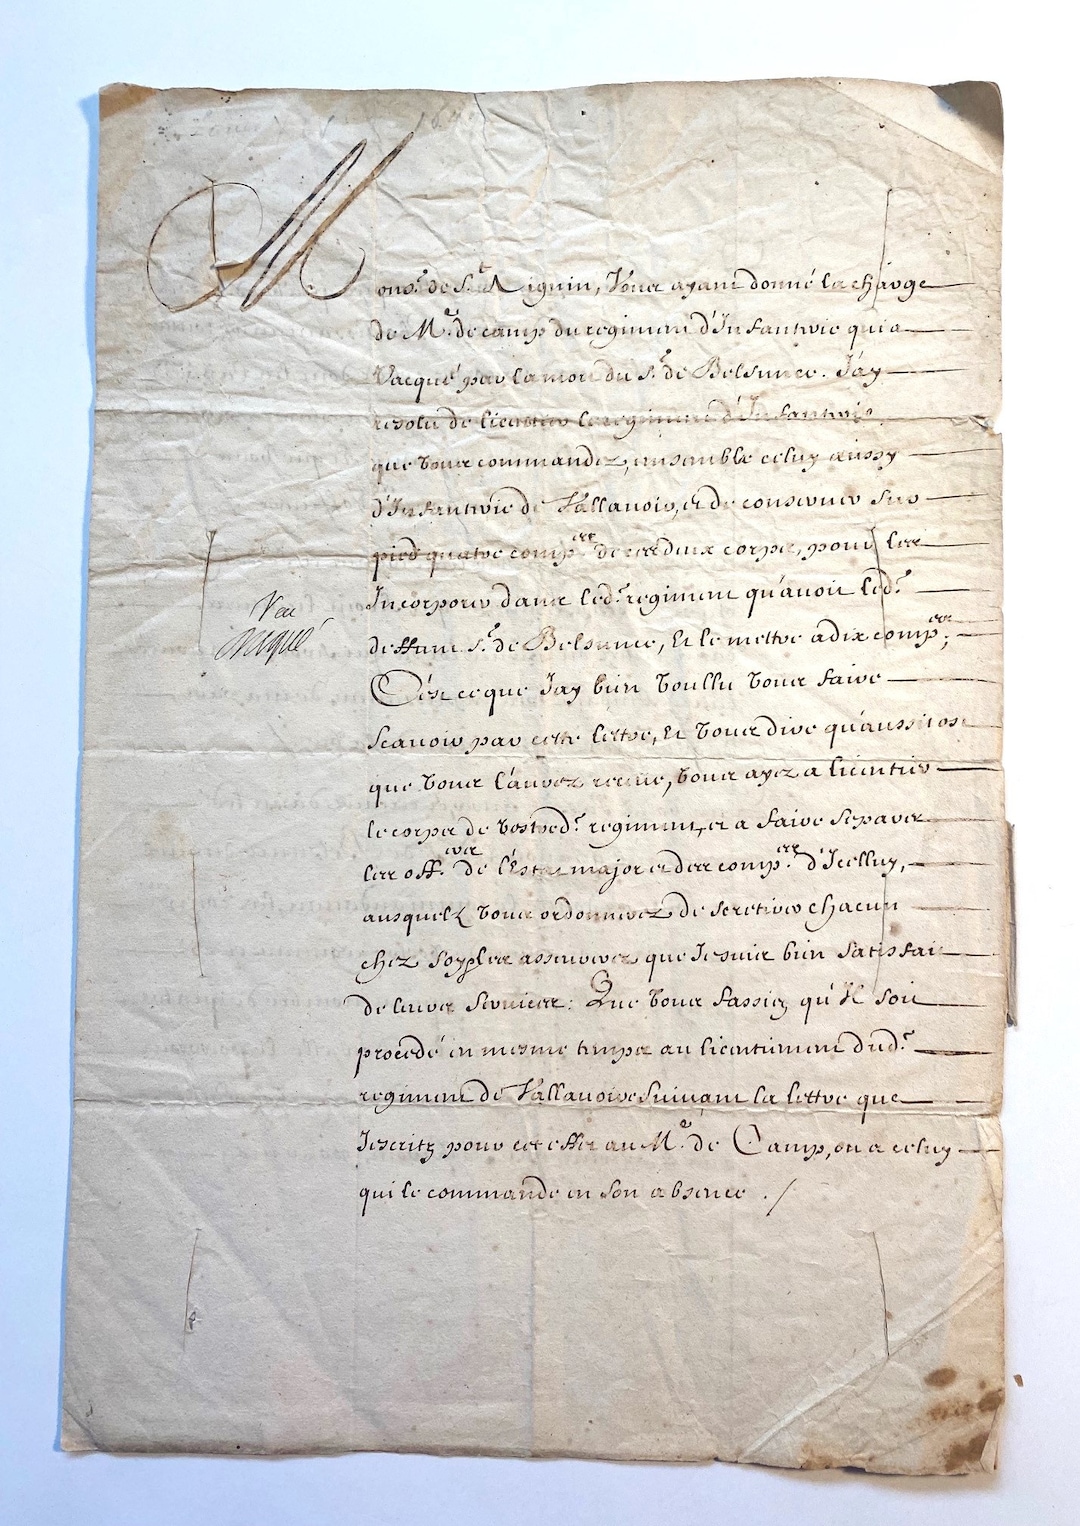 Mons.r de S.t Mignin, Vous ayant donné la charge
de M.e de camp du regiment d'Infanterie qui a
Vacqué par la mort du s.r de Belsunce. J'ay
resolu de licentier le regiment d'Infanterie
que vous commandez, ensemble celuy aussy
d'Infanterie de Vallavoir, et de conserver sur
pied quatre comp.es de ces deux corps, pour les
Incorporer dans led.t regiment qu'avoit led.t
deffunt s.r de Belsunce, Et le mettre a dix comp.es;
C'est ce que J'ay bien voullu vous faire
Scavoir par cette lettre, Et vous dire qu'aussitost
que vous l'aurez receue, vous ayez a licentier
Veu
le corps de vostred.t regiment, et a faire separer
les off.ers de l'Estat major et des comp.es d'Icelluy,
ausquelz vous ordonnerez de se retirer chacun
chez soy, les asseurerez que Je suis bien satisfait
de leurs services: Que vous fassiez qu'Il soit
procedé en mesme temps au licentiment dud.t
regiment de Vallavoire suivant la lettre que
J'escritz pour cet effet au M.e de Camp, ou a celuy
qui le commande en son absence ./